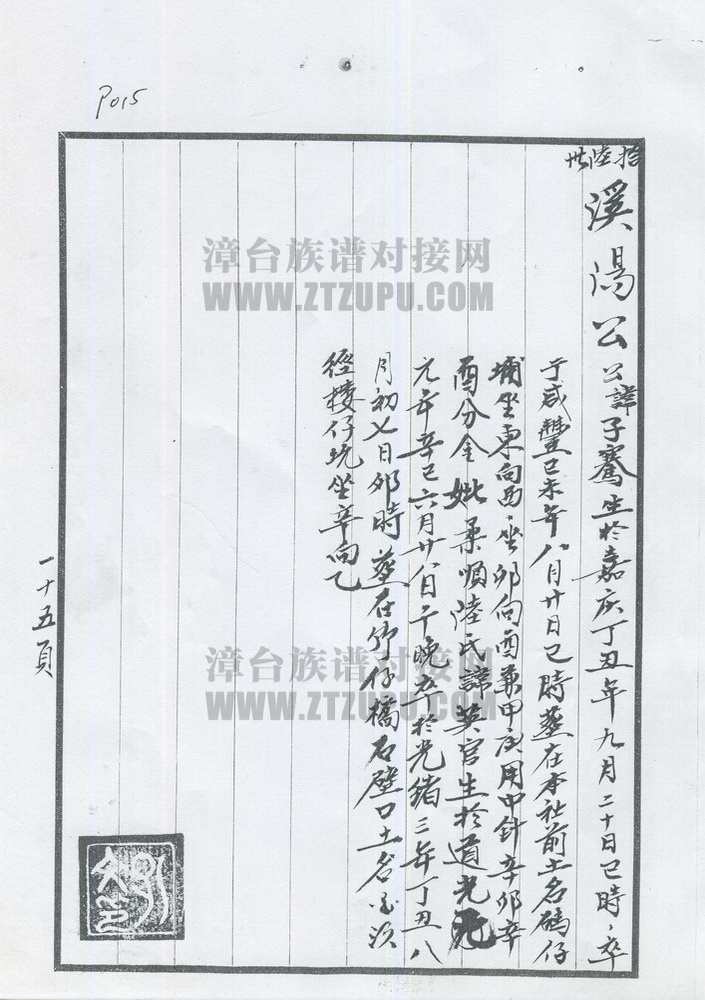 P015
拾陸世
溪湯公 公諱子騫生於嘉庆丁丑年九月二十日巳時,卒
于咸豐己未年八月廿日巳時塟在本社前土名碼仔
埔坐東向西,坐卯向酉兼甲庚用中針辛卯辛
酉分金 妣柔順陸氏諱英官生於道光
元年辛巳六月廿八日下晚卒於光緒三年丁丑八
月初七日卯時 塟在竹仔橋石壁口土名
徑楼仔坑坐辛向乙
一十五頁
漳台族谱对接网
WWW.ZTZUPU.COM
漳台族谱对接网
WWW.ZTZUPU.COM